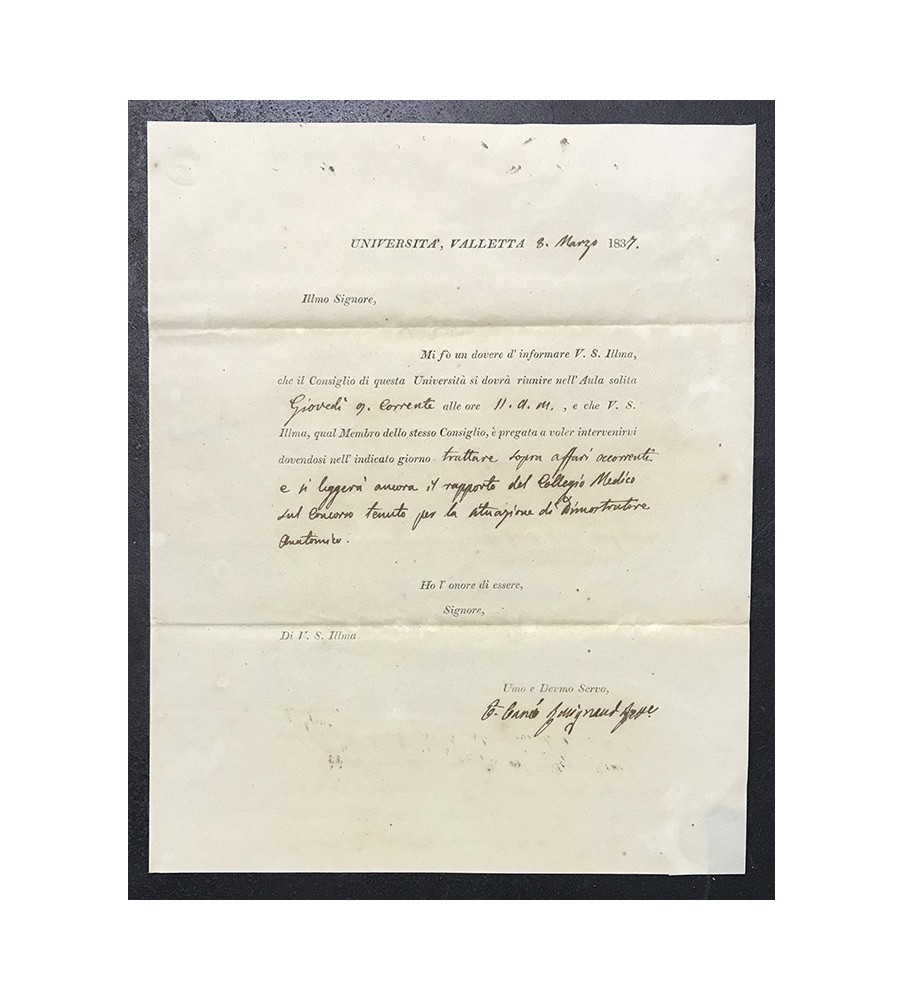 UNIVERSITA', VALLETTA 8. Marzo 1837.
Illmo Signore,
Mi fò un dovere d' informare V. S. Illma,
che il Consiglio di questa Università si dovrà riunire nell' Aula solita
Giovedì 9. Corrente alle ore 11. a. m. , e che V. S.
Illma, qual Membro dello stesso Consiglio, è pregata a voler intervenirvi
dovendosi nell' indicato giorno trattare sopra affari occorrenti
e si leggerà ancora il rapporto del Collegio Medico
sul Concorso tenuto per la situazione di Dimostratore
Anatomico.
Ho l' onore di essere,
Signore,
Di V. S. Illma
Umo e Devmo Servo,